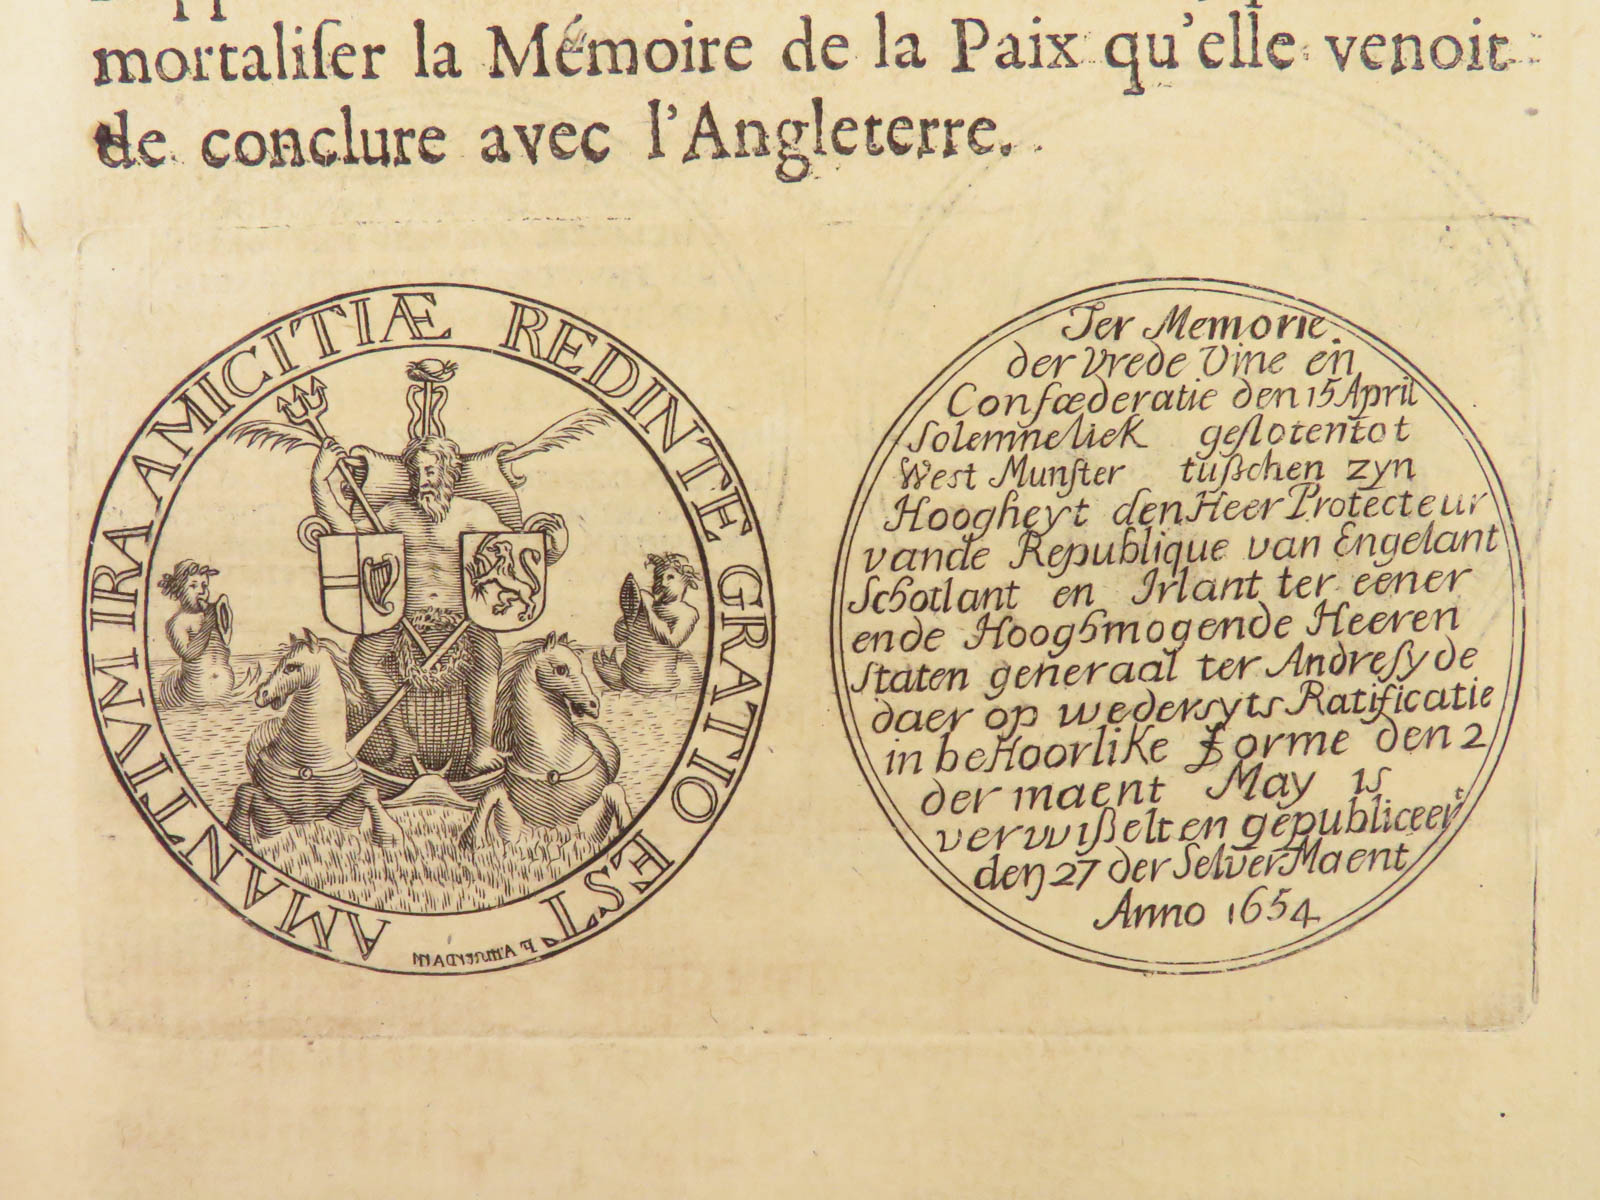 mortaliſer la Mémoire de la Paix qu'elle venoit
de conclure avec l'Angleterre.
AMANTIVM IRA AMICITIÆ REDINTE GRATIO EST.
Ter Memorie.
der Vrede Vine en
Confœderatie den 15 April
Solemneliek geslotentot
West Munſter tußchen zyn
Hoogheyt den Heer Protecteur
vande Republique van Engelant
Schotlant en Irlant ter eener
ende Hooghmogende Heeren
Staten generaal ter Andreſyde
daer op wedersyts Ratificatie
in beHoorlike Forme den 2
der maent May is
verwißelt en gepubliceert
den 27 der Selver Maent
Anno 1654